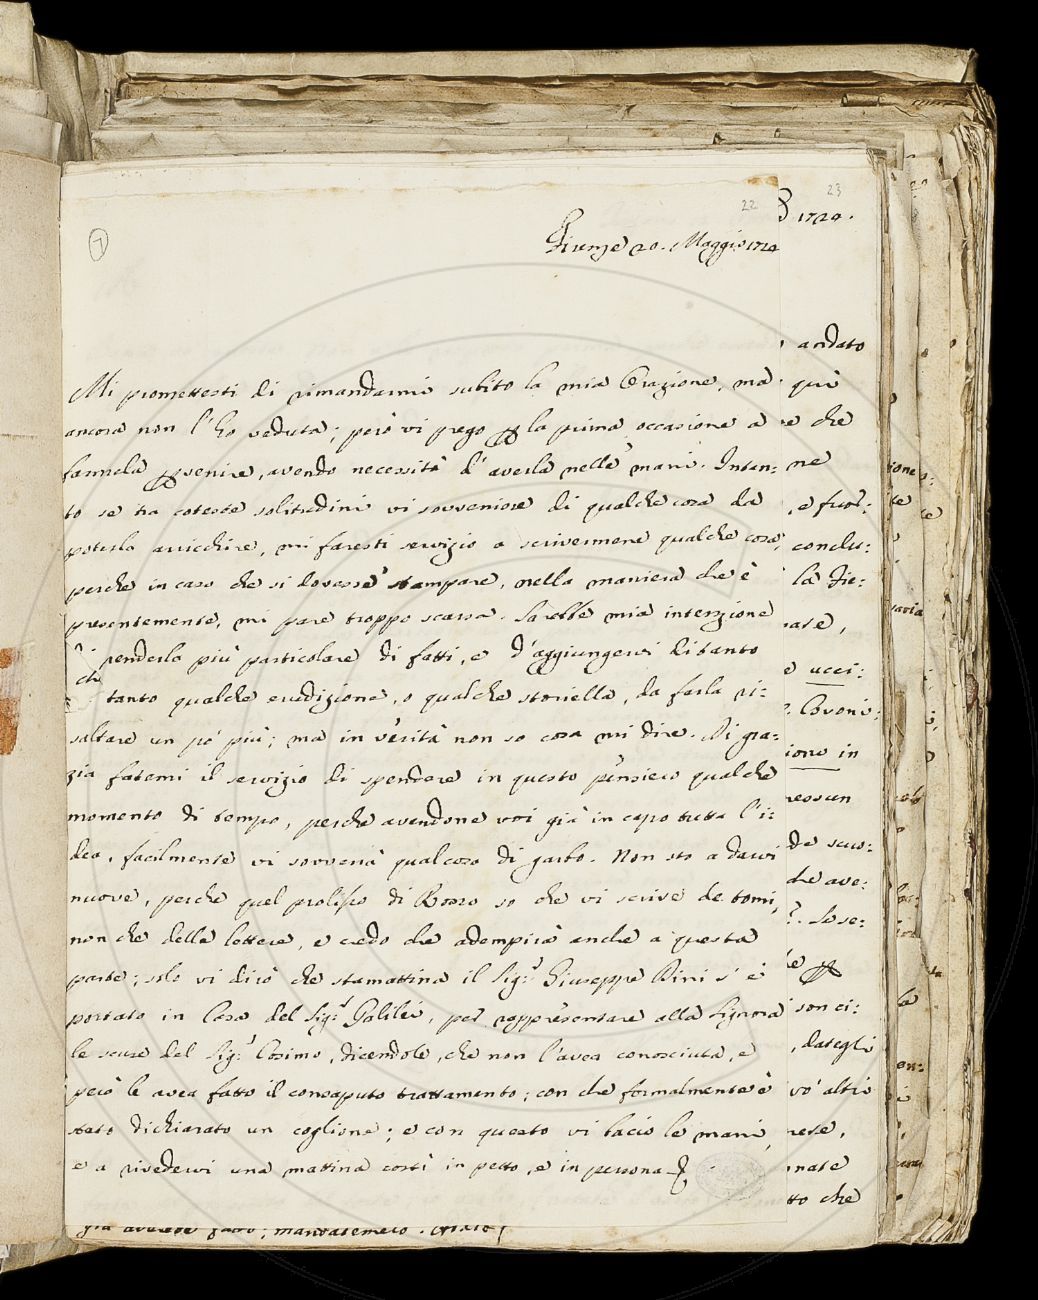 22
23
7
1724.
Firenze 20. Maggio 1724
Mi promettesti di rimandarmi subito la mia Orazione, mà
ancora non l'ho veduta; però vi prego la prima occasione a
farmela venire, avendo necessità d'averla nelle mani. Intan:
to se tra coteste solitudini vi sovvenisse di qualche cosa da
poterla arricchire, mi faresti servizio a scrivermene qualche cosa,
perche in caso che si dovesse stampare, nella maniera che è
presentemente, mi pare troppo scarsa. Sarebbe mia intenzione
renderla più particolare di fatti, e d'aggiungervi di tanto
tanto qualche erudizione, o qualche storiella, da farla ri:
saltare un pò più; ma in verità non so cosa mi dire. Di gra:
zia fatemi il servizio di spendere in questo pensiero qualche
momento di tempo, perche avendone voi già in capo tutta l'i:
dea, facilmente vi sovverrà qualcosa di garbo. Non sto a darvi
nuove, perche quel prolisso di so che vi scrive de tomi,
non che delle lettere, e credo che adempirà anche a questa
parte; solo vi dirò che stamattina il Sig.r Giuseppe Dini s'è
portato in Casa del Sig.r Galilei, per rappresentare alla Signora
le scuse del Sig.r Cosimo, dicendole, che non l'avea conosciuta, e
però le avea fatto il consaputo trattamento; con che formalmente è
stato dichiarato un coglione; e con questo vi bacio le mani,
e a rivedervi una mattina costì in petto, e in persona
andato
quì
che
ne
conclu:
la Fie:
ucci:
in
nessun
de scus:
che ave:
se:
son ci:
, dategli
altri
nate
che